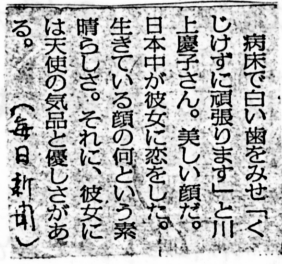 病床で白い歯をみせ「く
じけずに頑張ります」と川
上慶子さん。美しい顔だ。
日本中が彼女に恋をした。
生きている顔の何という素
晴らしさ。それに、彼女に
は天使の気品と優しさがあ
る。
(毎日新聞)